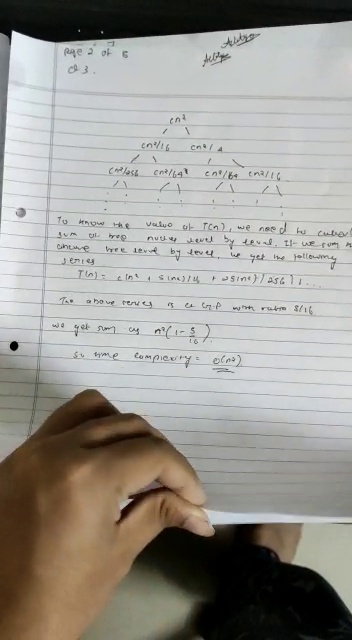 Page 2 of 5
Q 3.
cn²
cn²/16 cn²/4
cn²/256 cn²/64 cn²/64 cn²/16
To know the value of T(n), we need to
sum of tree nodes level by level. If we sum
tree level by level, we get the following
series
T(n) = c(n² + 5(n²)/16 + 25(n²)/256) + ...
The above series is a G.P with ratio 5/16
we get sum as n²(1 - 5/16)
so time complexity = O(n²)